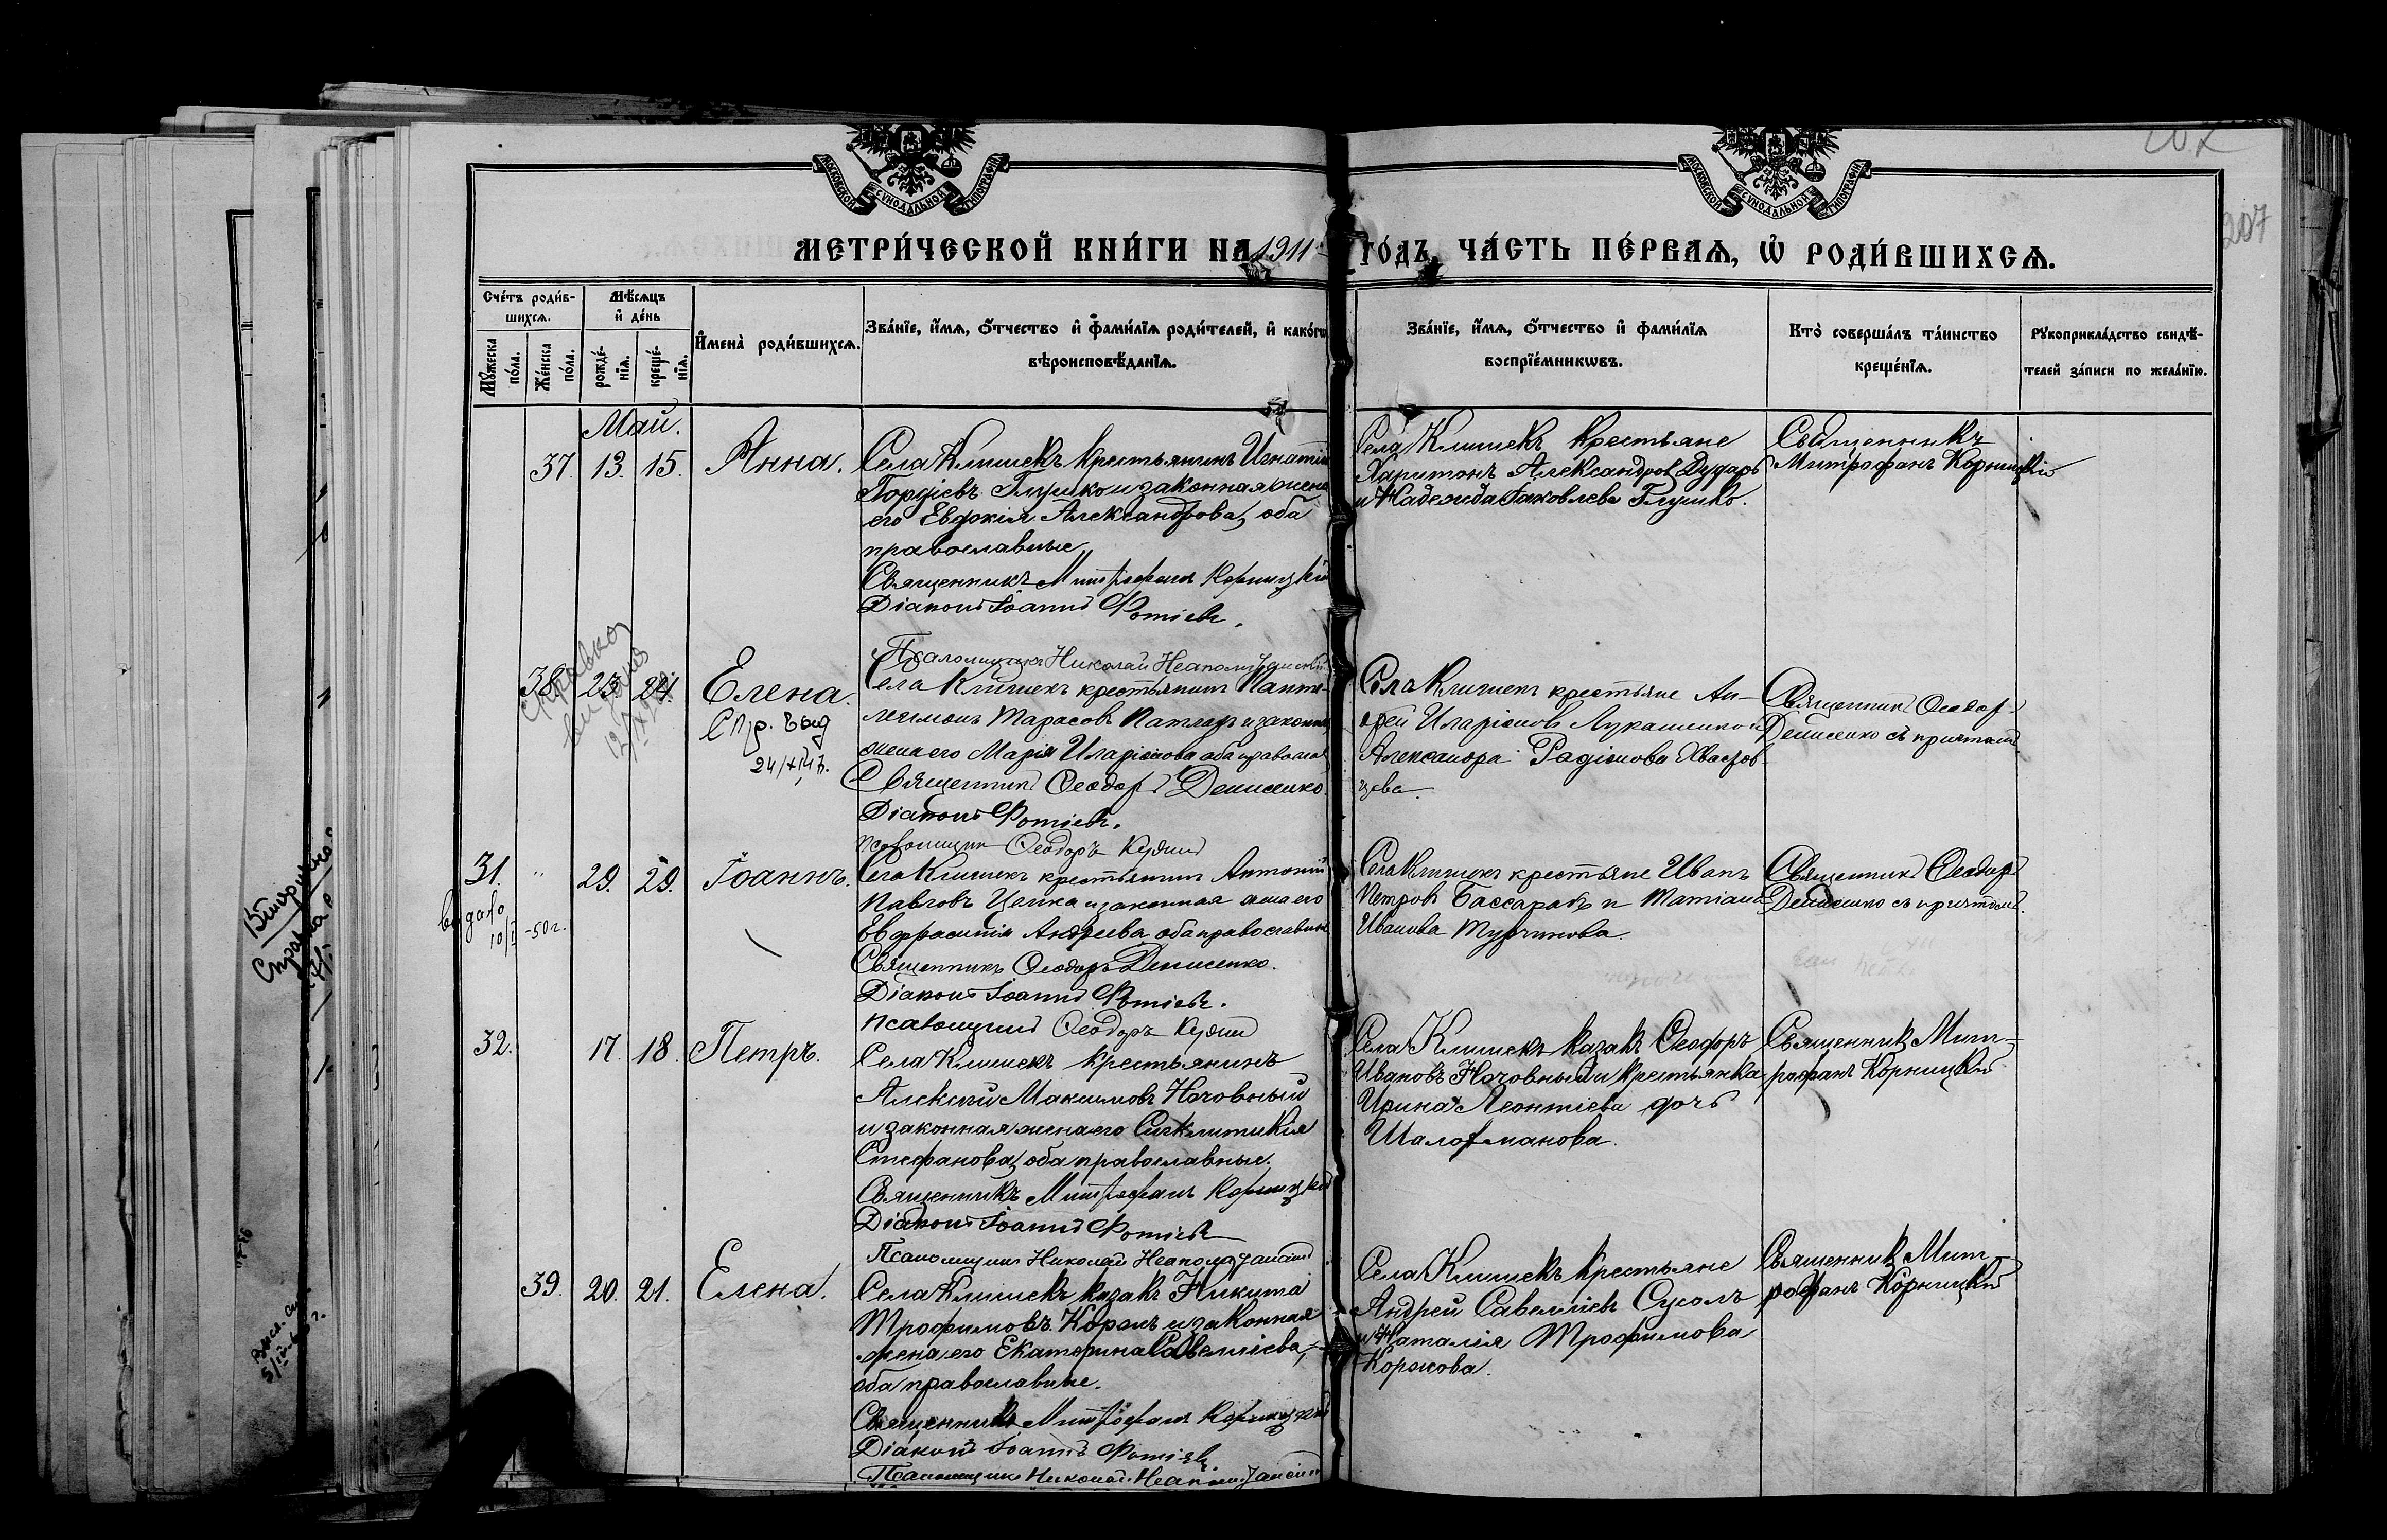 МОСКОВСКОЙ СѴНОДАЛЬНОЙ ТИПОГРАФІИ
МОСКОВСКОЙ СѴНОДАЛЬНОЙ ТИПОГРАФІИ
207
МЕТРИ́ЧЕСКОЙ КНИ́ГИ НА 1911 ГО́ДЪ, ЧА́СТЬ ПЕ́РВАѦ, Ѡ҆ РОДИ́ВШИХСѦ.
Сче́тъ роди́в-
шихсѧ.
Мꙋ́жеска по́ла.
Же́нска по́ла.
Мѣ́сѧцъ
и҆ де́нь
рожде́-
нїѧ.
креще́-
нїѧ.
И҆мена̀ роди́вшихсѧ.
Зва́нїе, и҆́мѧ, ѻ҆́тчество и҆ фами́лїѧ роди́телей, и҆ како́гѡ
вѣроисповѣ́данїѧ.
Зва́нїе, и҆́мѧ, ѻ҆́тчество и҆ фами́лїѧ
воспрїе́мникѡвъ.
Кто̀ соверша́лъ та́инство
креще́нїѧ.
Рꙋкоприкла́дство свидѣ́-
телей за́писи по жела́нїю.
Май.
37. 13. 15. Анна.
Села Клишекъ крестьянинъ Игнатій
Гордіевъ Глушко и законная жена
его Евдокія Александрова, оба
православные
Священникъ Митрофанъ Корницкій
Діаконъ Іоаннъ Фотіевъ.
Псаломщикъ Николай
Села Клишекъ крестьяне
Харитонъ Александровъ Дударь
и Надежда Іаковлева Глушко.
Священникъ
Митрофанъ Корницкій
38. 23. 24. Елена.
Справка
выдана
Спр. выд
Села Клишекъ крестьянинъ Панте-
леимонъ Тарасовъ и законная
жена его Марія Иларіонова оба православ
Священникъ Ѳеодоръ Денисенко.
Діаконъ Фотіевъ.
Псаломщикъ Ѳеодоръ
Села Клишекъ крестьяне Ан-
дрей Иларіоновъ Лукашенко и
Александра Радіонова
Священникъ Ѳеодоръ
Денисенко съ причтомъ.
31. " 29. 29. Іоаннъ.
выдано
10/I -50г.
Села Клишекъ крестьянинъ Антоній
Павловъ Цепка и законная жена его
Евфросинія Андреева оба православные
Священникъ Ѳеодоръ Денисенко.
Діаконъ Іоаннъ Фотіевъ.
Псаломщикъ Ѳеодоръ
Села Клишекъ крестьяне Иванъ
Петровъ Бассарабъ и Татіана
Иванова Турчинова.
Священникъ Ѳеодоръ
Денисенко съ причтомъ.
32. 17. 18. Петръ.
Села Клишекъ крестьянинъ
Алексій Максимовъ Начовный
и законная жена его Сигклитикія
Стефанова, оба православные.
Священникъ Митрофанъ Корницкій
Діаконъ Іоаннъ Фотіевъ
Псаломщикъ Николай
Села Клишекъ казакъ Ѳеодоръ
Ивановъ Начовный и крестьянка
Ирина Леонтіева дочь
Шалотманова.
Священникъ Мит-
рофанъ Корницкій
39. 20. 21. Елена.
Села Клишекъ казакъ Никита
Трофимовъ Корж и законная
жена его Екатерина Савелліева,
оба православные.
Священникъ Митрофанъ Корницкій
Діаконъ Іоаннъ Фотіевъ.
Псаломщикъ Николай
Села Клишекъ крестьяне
Андрей Савелліевъ Сухолъ
и Наталія Трофимова
Коржова.
Священникъ Мит-
рофанъ Корницкій